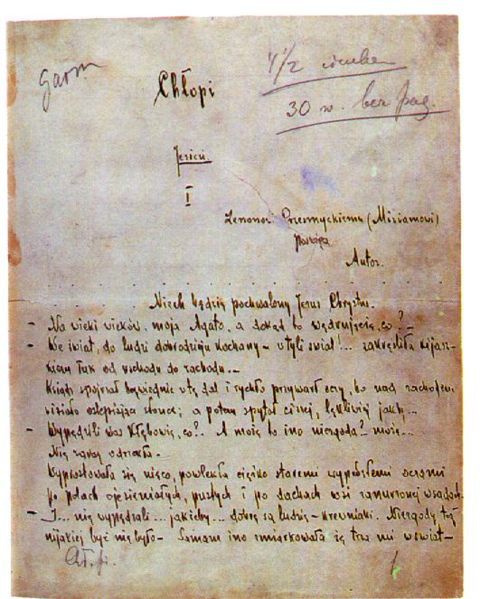 Garm
4 1/2
Chłopi
30 w. bez pag.
Jesień.
I
Zenonowi Przesmyckiemu (Miriamowi)
poświęca
Autor.
Niech będzie pochwalony Jezus Chrystus.
- Na wieki wieków, moja Agato, a dokąd to wędrujecie, co? -
- We świat, do ludzi dobrodzieju kochany - w tyli świat!... zakreśliła kijasz-
kiem łuk od wschodu do zachodu. -
Ksiądz spojrzał bezwiednie w tę dal i rychło przywarł oczy, bo nad zachodem
wisiało oślepiające słońce; a potem spytał ciszej, lękliwiej jakby -
- Wypędzili was Kłębowie, co?.. A może to ino niezgoda? może...
Nie zaraz odrzekła. -
Wyprostowała się nieco, powlekła ciężko staremi wypełzłemi oczami
po polach ojesieniałych, pustych i po dachach wsi zanurzonej w sadach
- I... nie wypędzali... jakżeby... dobre są ludzie - krewniaki. Niezgody też
nijakiej być nie było - Samam ino zmiarkowała że trza mi w świat -